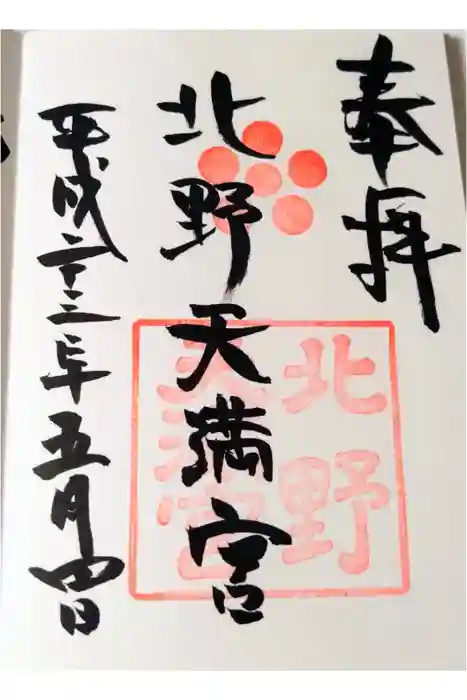 奉拝
北野天満宮
北野
天満宮
平成二十三年五月四日